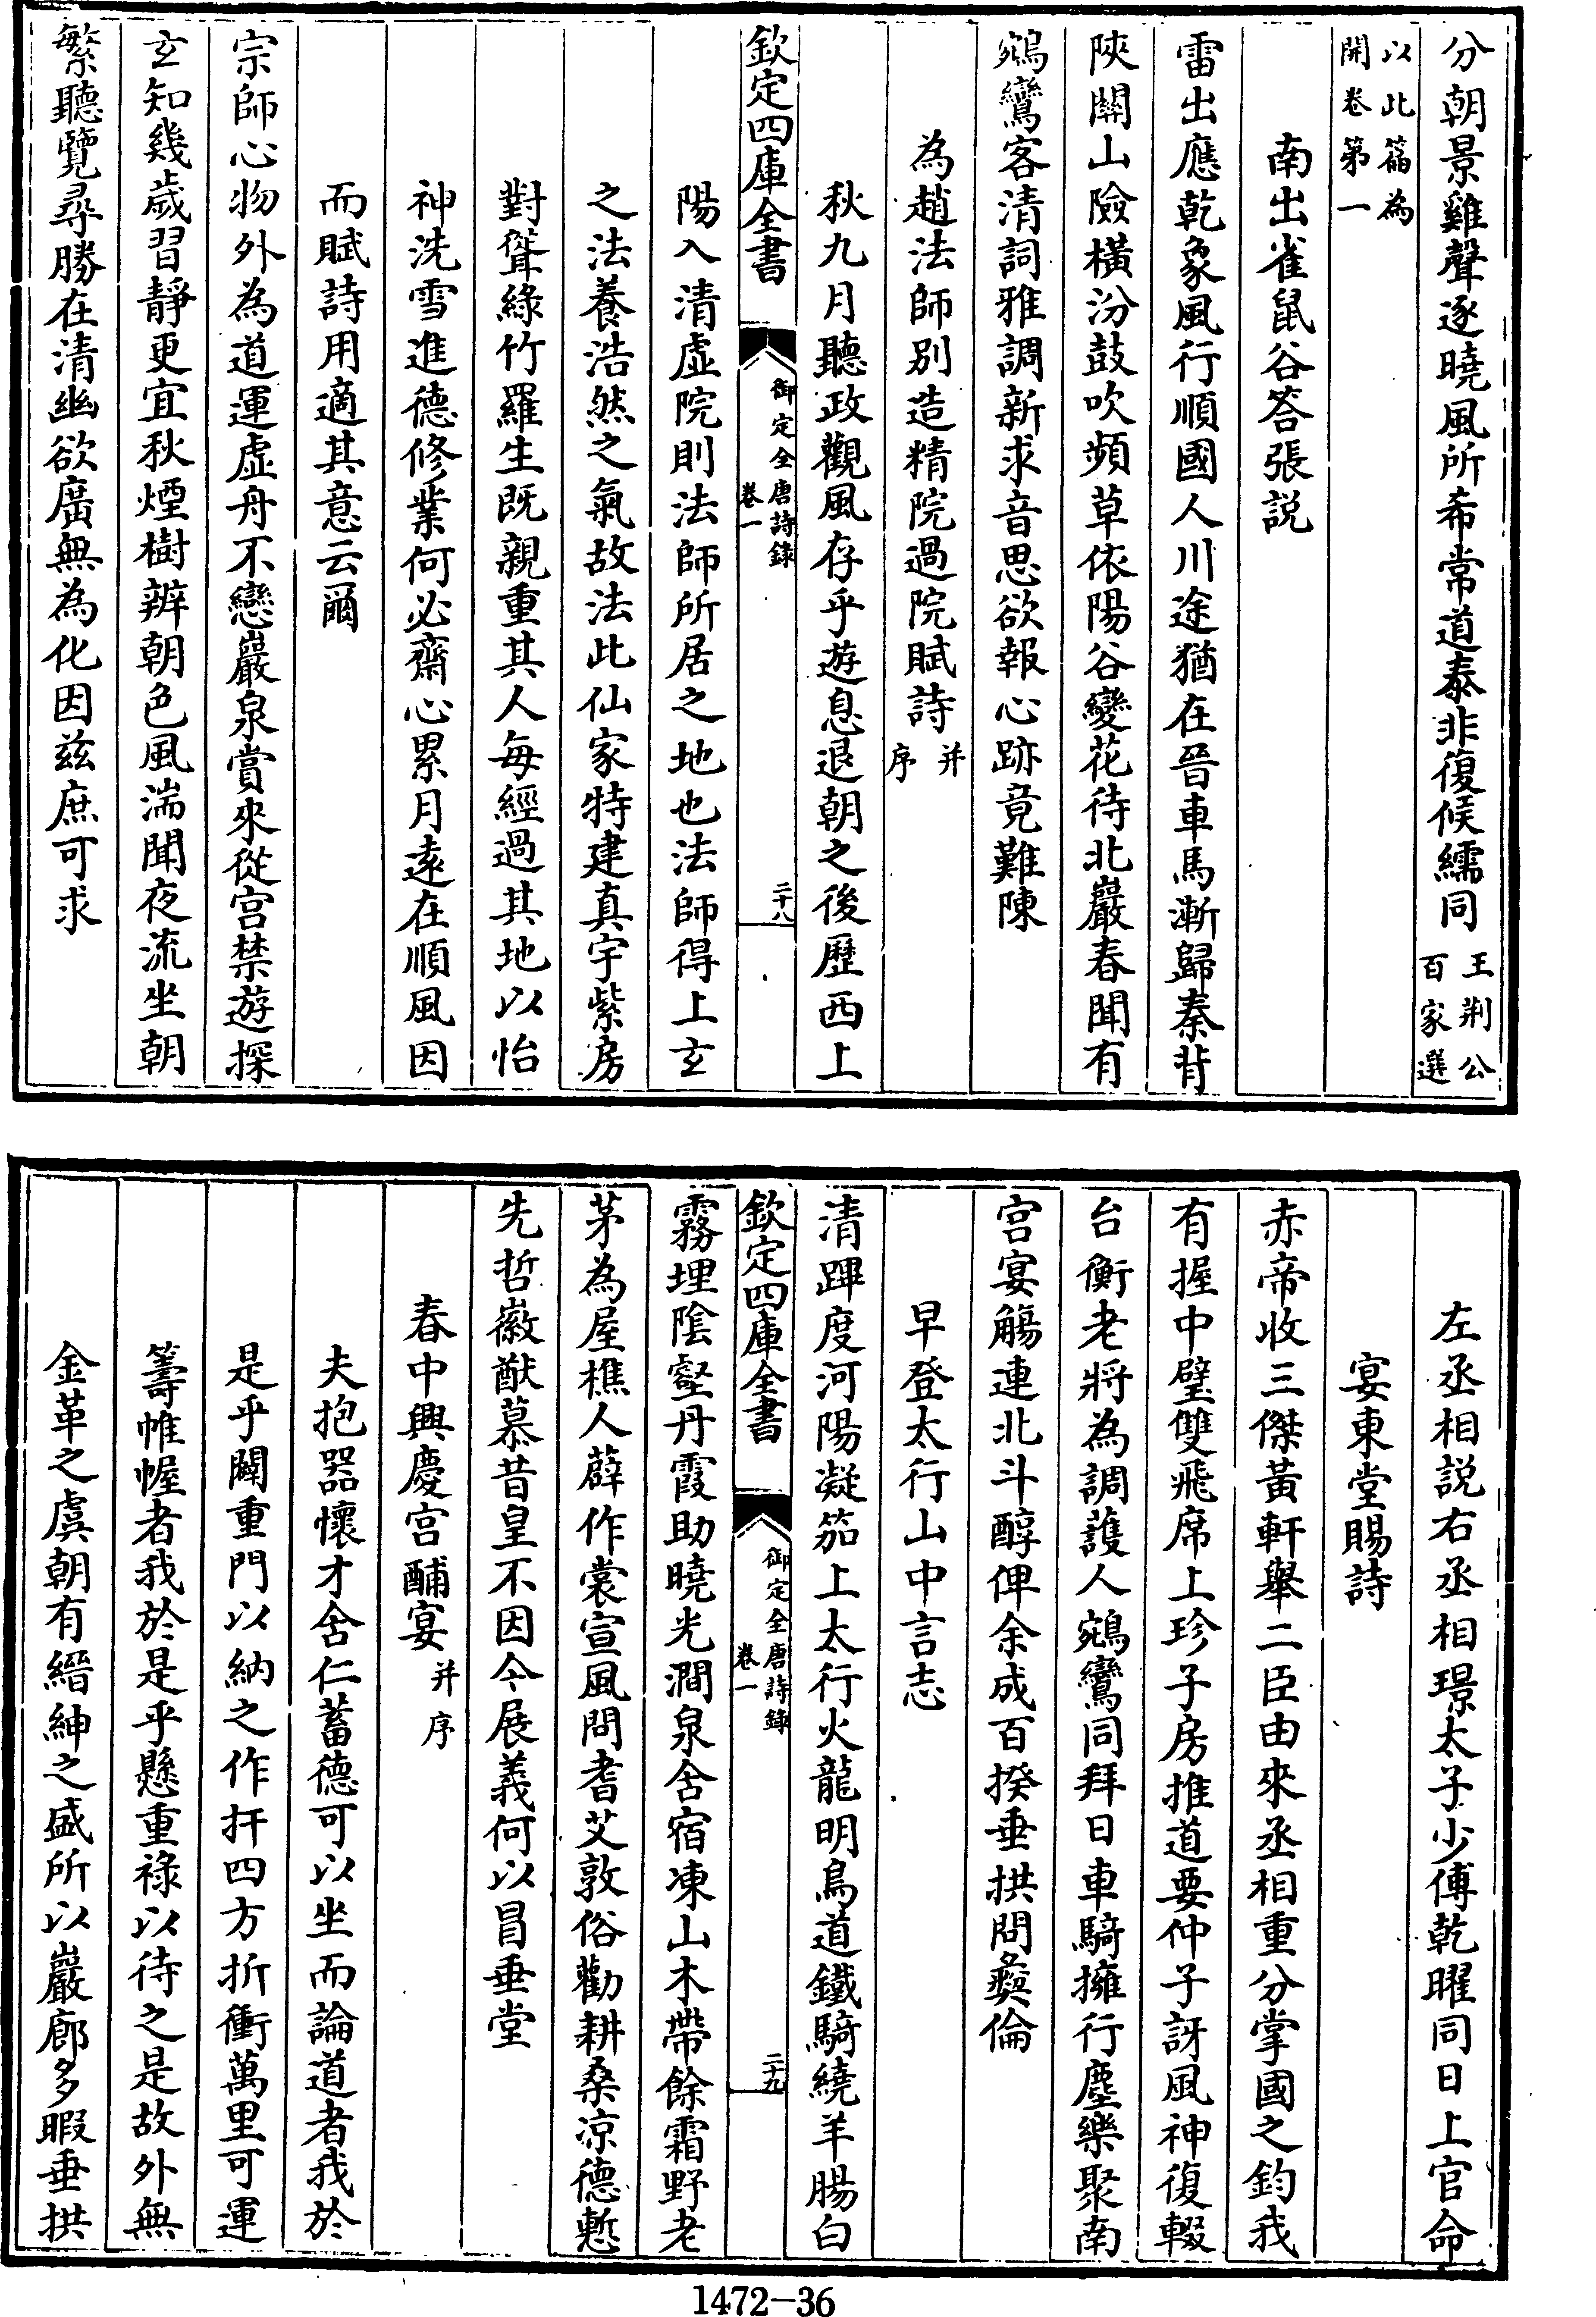 分朝景雞聲逐曉風所希常道泰非復候繻同王荆公百家選
以此篇為開卷第一
南出雀鼠谷答張説
雷出應乾象風行順國人川途猶在晉車馬漸歸秦背
陜關山險橫汾鼓吹頻草依陽谷變花待北巖春聞有
鵷鸞客清詞雅調新求音思欲報心跡竟難陳
為趙法師別造精院過院賦詩并序
秋九月聽政觀風存乎遊息退朝之後歷西上
欽定四庫全書 御定全唐詩錄 卷一 二十八
陽入清虚院則法師所居之地也法師得上玄
之法養浩然之氣故法此仙家特建真宇紫房
對聳綠竹羅生既親重其人每經過其地以怡
神洗雪進德修業何必齋心累月遠在順風因
而賦詩用適其意云爾
宗師心物外為道運虚舟不戀巖泉賞來從宮禁遊探
玄知幾歲習靜更宜秋煙樹辨朝色風湍聞夜流坐朝
繁聽覽尋勝在清幽欲廣無為化因兹庶可求
左丞相説右丞相璟太子少傅乾曜同日上官命
宴東堂賜詩
赤帝收三傑黃軒舉二臣由來丞相重分掌國之鈞我
有握中璧雙飛席上珍子房推道要仲子訝風神復輟
台衡老將為調護人鵷鸞同拜日車騎擁行塵樂聚南
宮宴觴連北斗醇俾余成百揆垂拱問彝倫
早登太行山中言志
清蹕度河陽凝笳上太行火龍明鳥道鐵騎繞羊腸白
欽定四庫全書 御定全唐詩錄 卷一 二十九
霧埋陰壑丹霞助曉光澗泉含宿凍山木帶餘霜野老
茅為屋樵人薜作裳宣風問耆艾敦俗勸耕桑凉德慙
先哲徽猷慕昔皇不因今展義何以冒垂堂
春中興慶宮酺宴并序
夫抱器懷才含仁蓄德可以坐而論道者我於
是乎闢重門以納之作扞四方折衝萬里可運
籌帷幄者我於是乎懸重祿以待之是故外無
金革之虞朝有縉紳之盛所以巖廊多暇垂拱
1472-36